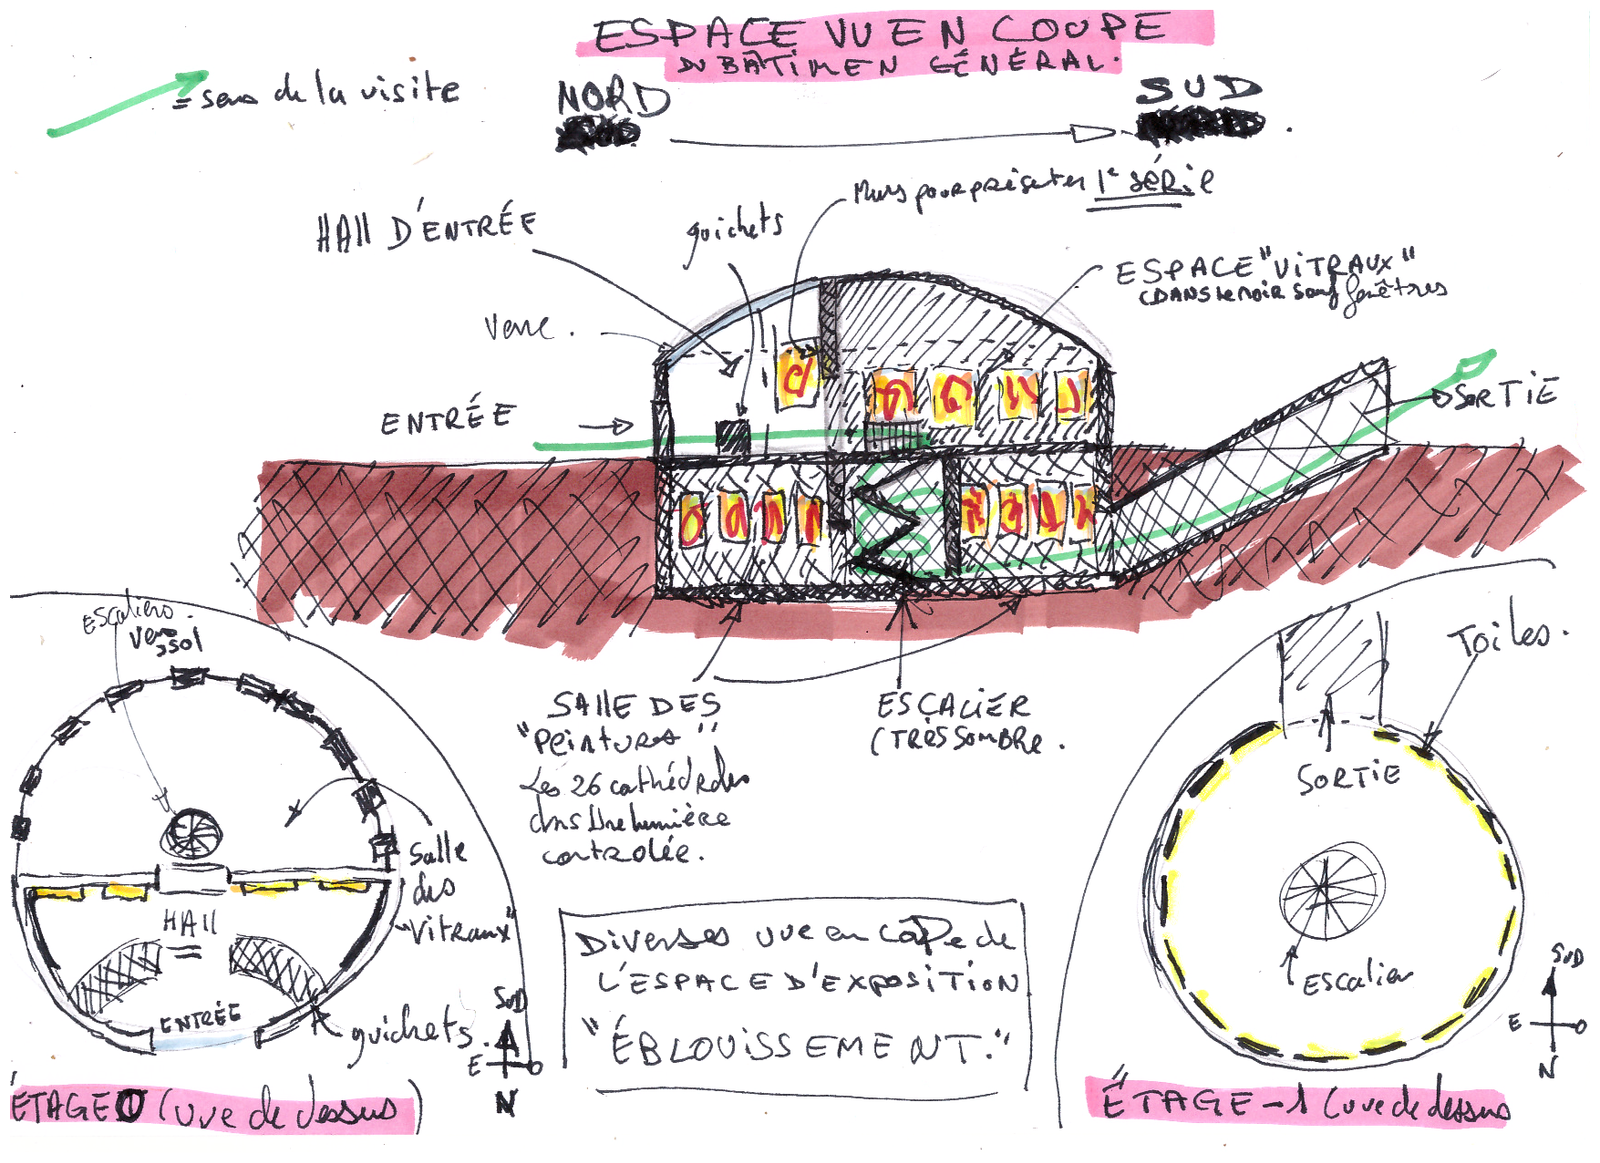 ESPACE VU EN COUPE
DU BÂTIMEN GÉNÉRAL.
= sens de la visite
NORD
SUD
Murs pour présenter 1e série
HAll D'ENTRÉE
guichets
ESPACE "VITRAUX"
(DANS le noir sauf fenêtres
Verre.
ENTRÉE
SORTIE
Escaliers
Vers
ssol
SAllE DES
"Peintures"
Les 26 cathédrales
dans Une lumière
controlée.
ESCALIER
(TRÈS SOMBRE.
Toiles.
SORTIE
Escalier
Salle
des
"Vitraux"
HAll
ENTRÉE
guichets.
SUD
E O
N
Diverses vue en coupe de
L'ESPACE D'EXPOSITION
"ÉBLOUISSEMENT."
SUD
E O
N
ÉTAGE 0 (vue de dessus)
ÉTAGE -1 (vue de dessus